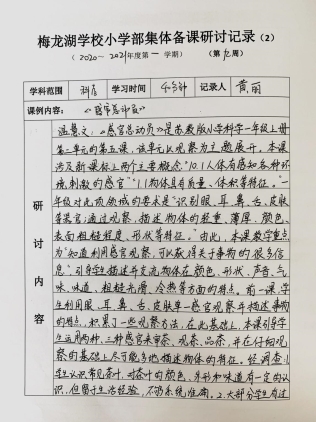 梅龙湖学校小学部集体备课研讨记录（2）
（2020～2021年度第一学期） （第九周）
学科范围 科店 学习时间 40分钟 记录人 黄丽
课例内容：《感官总动员》
研讨内容
温慧文：《感官总动员》是苏教版小学科学一年级上册
第三单元的第五课，该单元以观察为主题展开。本课
涉及新课标上两个主要概念"10.1人体有感知各种环
境刺激的感官""1.1物体具有质量、体积等特征。"一
年级对此项领域的要求是"识别眼、耳、鼻、舌、皮肤
等器官；通过观察，描述物体的轻重、薄厚、颜色、
表面粗糙程度、形状等特征。"由此，本课教学重点
为"知道利用感官观察，可以获得关于事物的很多信
息"，引导学生描述并交流物体在颜色、形状、声音、气
味、味道、粗糙光滑、冷热等方面的特点。前一课学
生利用眼、耳、鼻、舌、皮肤单一感官观察并描述事物
的特点，积累了一些观察方法，在此基础上，本课引导学
生运用两种、三种感官来审茶、观茶、品茶，并在仔细观
察的基础上尽可能多地描述物体的特征。经调查：1.
学生认识常见茶叶，对茶叶的颜色、外形和味道有一定的认
识，但留于生活经验，不够系统、准确。2.大部分学生有过